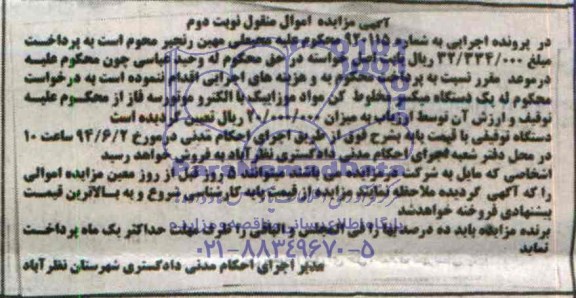 آگهی مزایده اموال منقول نوبت دوم
در پرونده اجرایی به شماره ۹۲۰۱۱۵ محکوم علیه محیطی مهین رنجبر محکوم است به پرداخت
مبلغ ۳۲/۳۳۴/۰۰۰ ریال اصل خواسته در حق محکوم له وحید عباسی چون محکوم علیه
در موعد مقرر نسبت به پرداخت محکوم به و هزینه های اجرایی اقدام ننموده است به درخواست
محکوم له یک دستگاه میکسر مخلوط کن مواد موزاییک با الکترو موتور سه فاز از محکوم علیه
توقیف و ارزش آن توسط ارزیاب به میزان ۲۰/۰۰۰/۰۰۰ ریال تعیین گردیده است
دستگاه توقیفی با قیمت پایه بشرح فوق از طریق اجرای احکام مدنی در مورخ ۹۴/۶/۲ ساعت ۱۰
در محل دفتر شعبه اجرای احکام مدنی دادگستری نظرآباد به فروش خواهد رسید
اشخاصی که مایل به شرکت در مزایده می باشند میتوانند ۵ روز قبل از روز معین مزایده اموالی
را که آگهی گردیده ملاحظه نمایند مزایده از قیمت پایه کارشناسی شروع و به بالاترین قیمت
پیشنهادی فروخته خواهد شد
برنده مزایده باید ده درصد بها را فی المجلس و الباقی را ظرف مهلت حداکثر یک ماه پرداخت
نماید
مدیر اجرای احکام مدنی دادگستری شهرستان نظرآباد
پایگاه اطلاع رسانی مناقصه و مزایده
۰۲۱-۸۸۳۴۹۶۷۰-۵